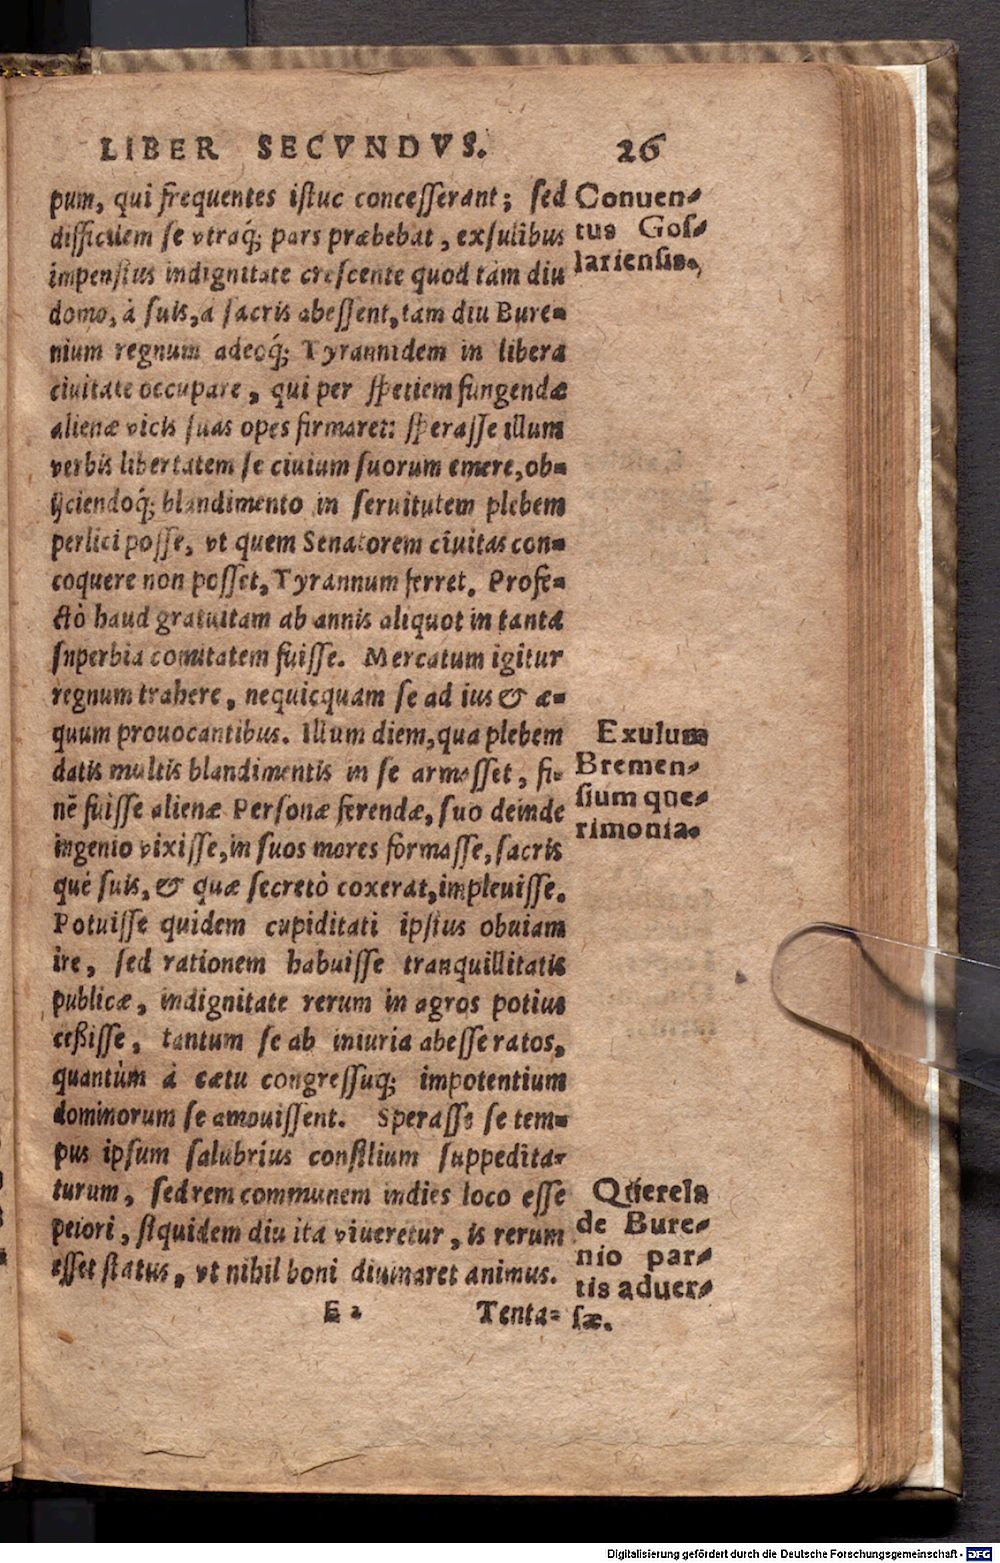 LIBER SECVNDVS. 26
pum, qui frequentes iſtuc conceſſerant; ſed
difficilem ſe vtraq́; pars præbebat, exſulibus
impenſius indignitate creſcente quod tam diu
domo, à ſuis, a ſacris abeſſent, tam diu Bure-
nium regnum adeoq́; Tyrannidem in libera
ciuitate occupare, qui per ſpetiem fungendæ
alienæ vicis ſuas opes firmaret: ſperaſſe illum
verbis libertatem ſe ciuium ſuorum emere, ob-
ijciendoq́; blandimento in ſeruitutem plebem
perlici poſſe, vt quem Senatorem ciuitas con-
coquere non poſſet, Tyrannum ferret. Profe-
ctò haud gratuitam ab annis aliquot in tanta
ſuperbia comitatem fuiſſe. Mercatum igitur
regnum trahere, nequicquam ſe ad ius & æ-
quum prouocantibus. Illum diem, qua plebem
datis multis blandimentis in ſe armaſſet, fi-
nē fuiſſe alienæ Perſonæ ferendæ, ſuo deinde
ingenio vixiſſe, in ſuos mores formaſſe, ſacris
què ſuis, & quæ ſecretò coxerat, impleuiſſe.
Potuiſſe quidem cupiditati ipſius obuiam
ire, ſed rationem habuiſſe tranquillitatis
publicæ, indignitate rerum in agros potius
ceßiſſe, tantum ſe ab iniuria abeſſe ratos,
quantùm à cætu congreſſuq́; impotentium
dominorum ſe amouiſſent. Speraſſe ſe tem-
pus ipſum ſalubrius conſilium ſuppedita-
turum, ſed rem communem indies loco eſſe
peiori, ſiquidem diu ita viueretur, is rerum
eſſet ſtatus, vt nihil boni diuinaret animus.
E 2 Tenta-
Conuen-
tus Goſ-
larienſis.
Exulum
Bremen-
ſium que-
rimonia.
Querela
de Bure-
nio par-
tis aduer-
ſæ.
Digitalisierung gefördert durch die Deutsche Forschungsgemeinschaft - DFG